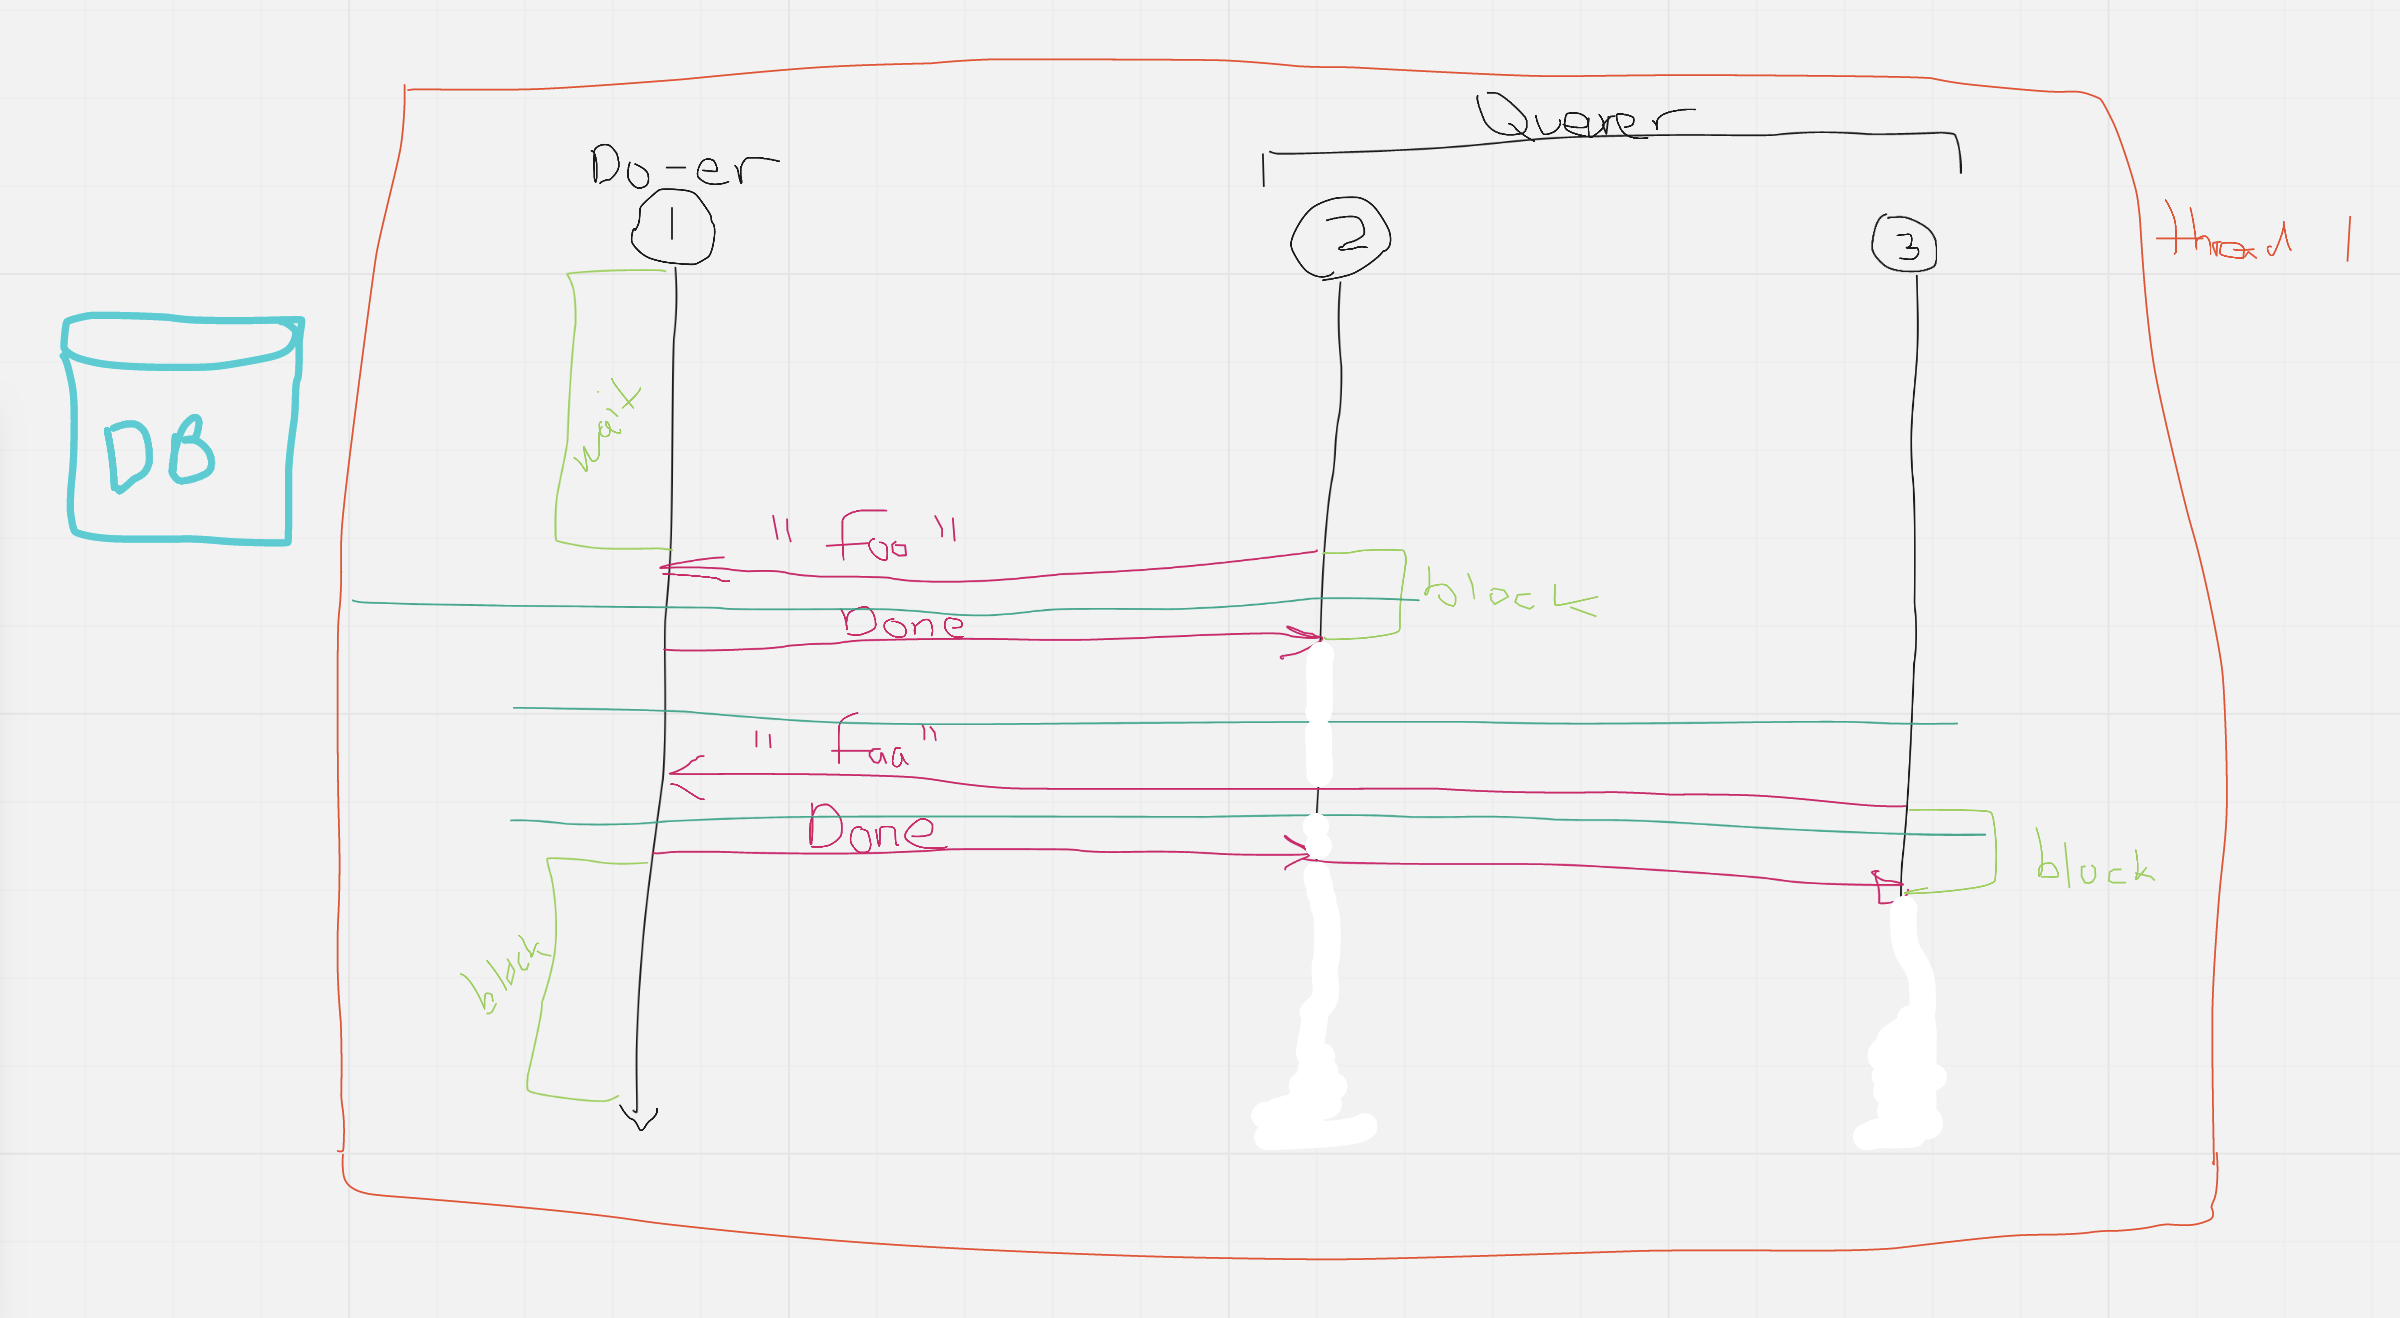 Querer
Do-er
1
2
3
thread 1
wait
DB
"foo"
block
Done
"faa"
Done
block
block